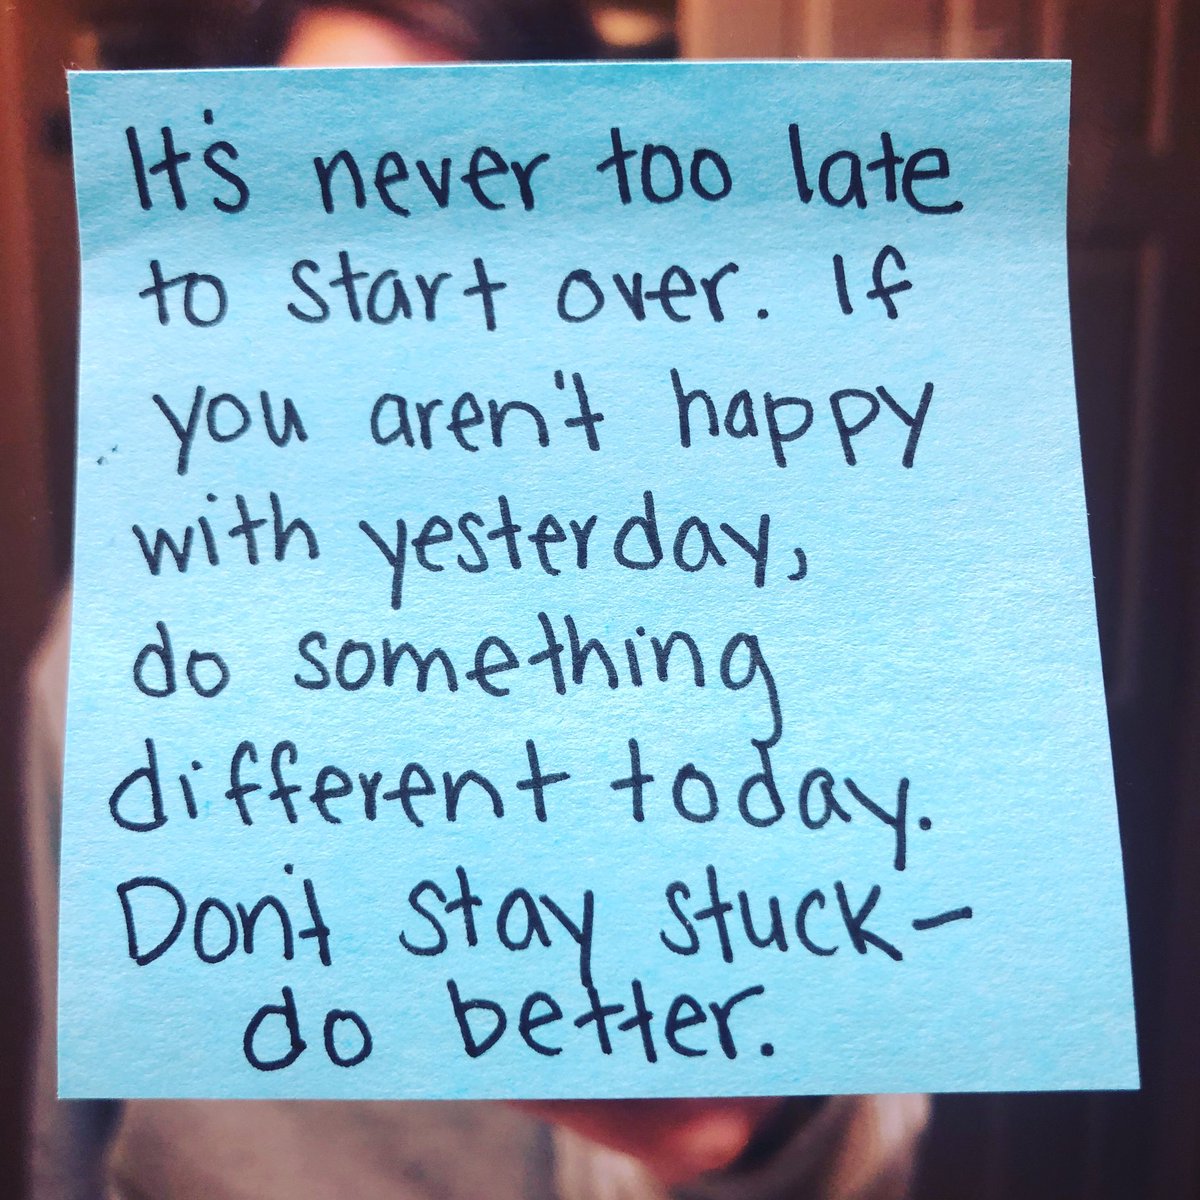 It's never too late
to start over. If
you aren't happy
with yesterday,
do something
different today.
Don't stay stuck-
do better.